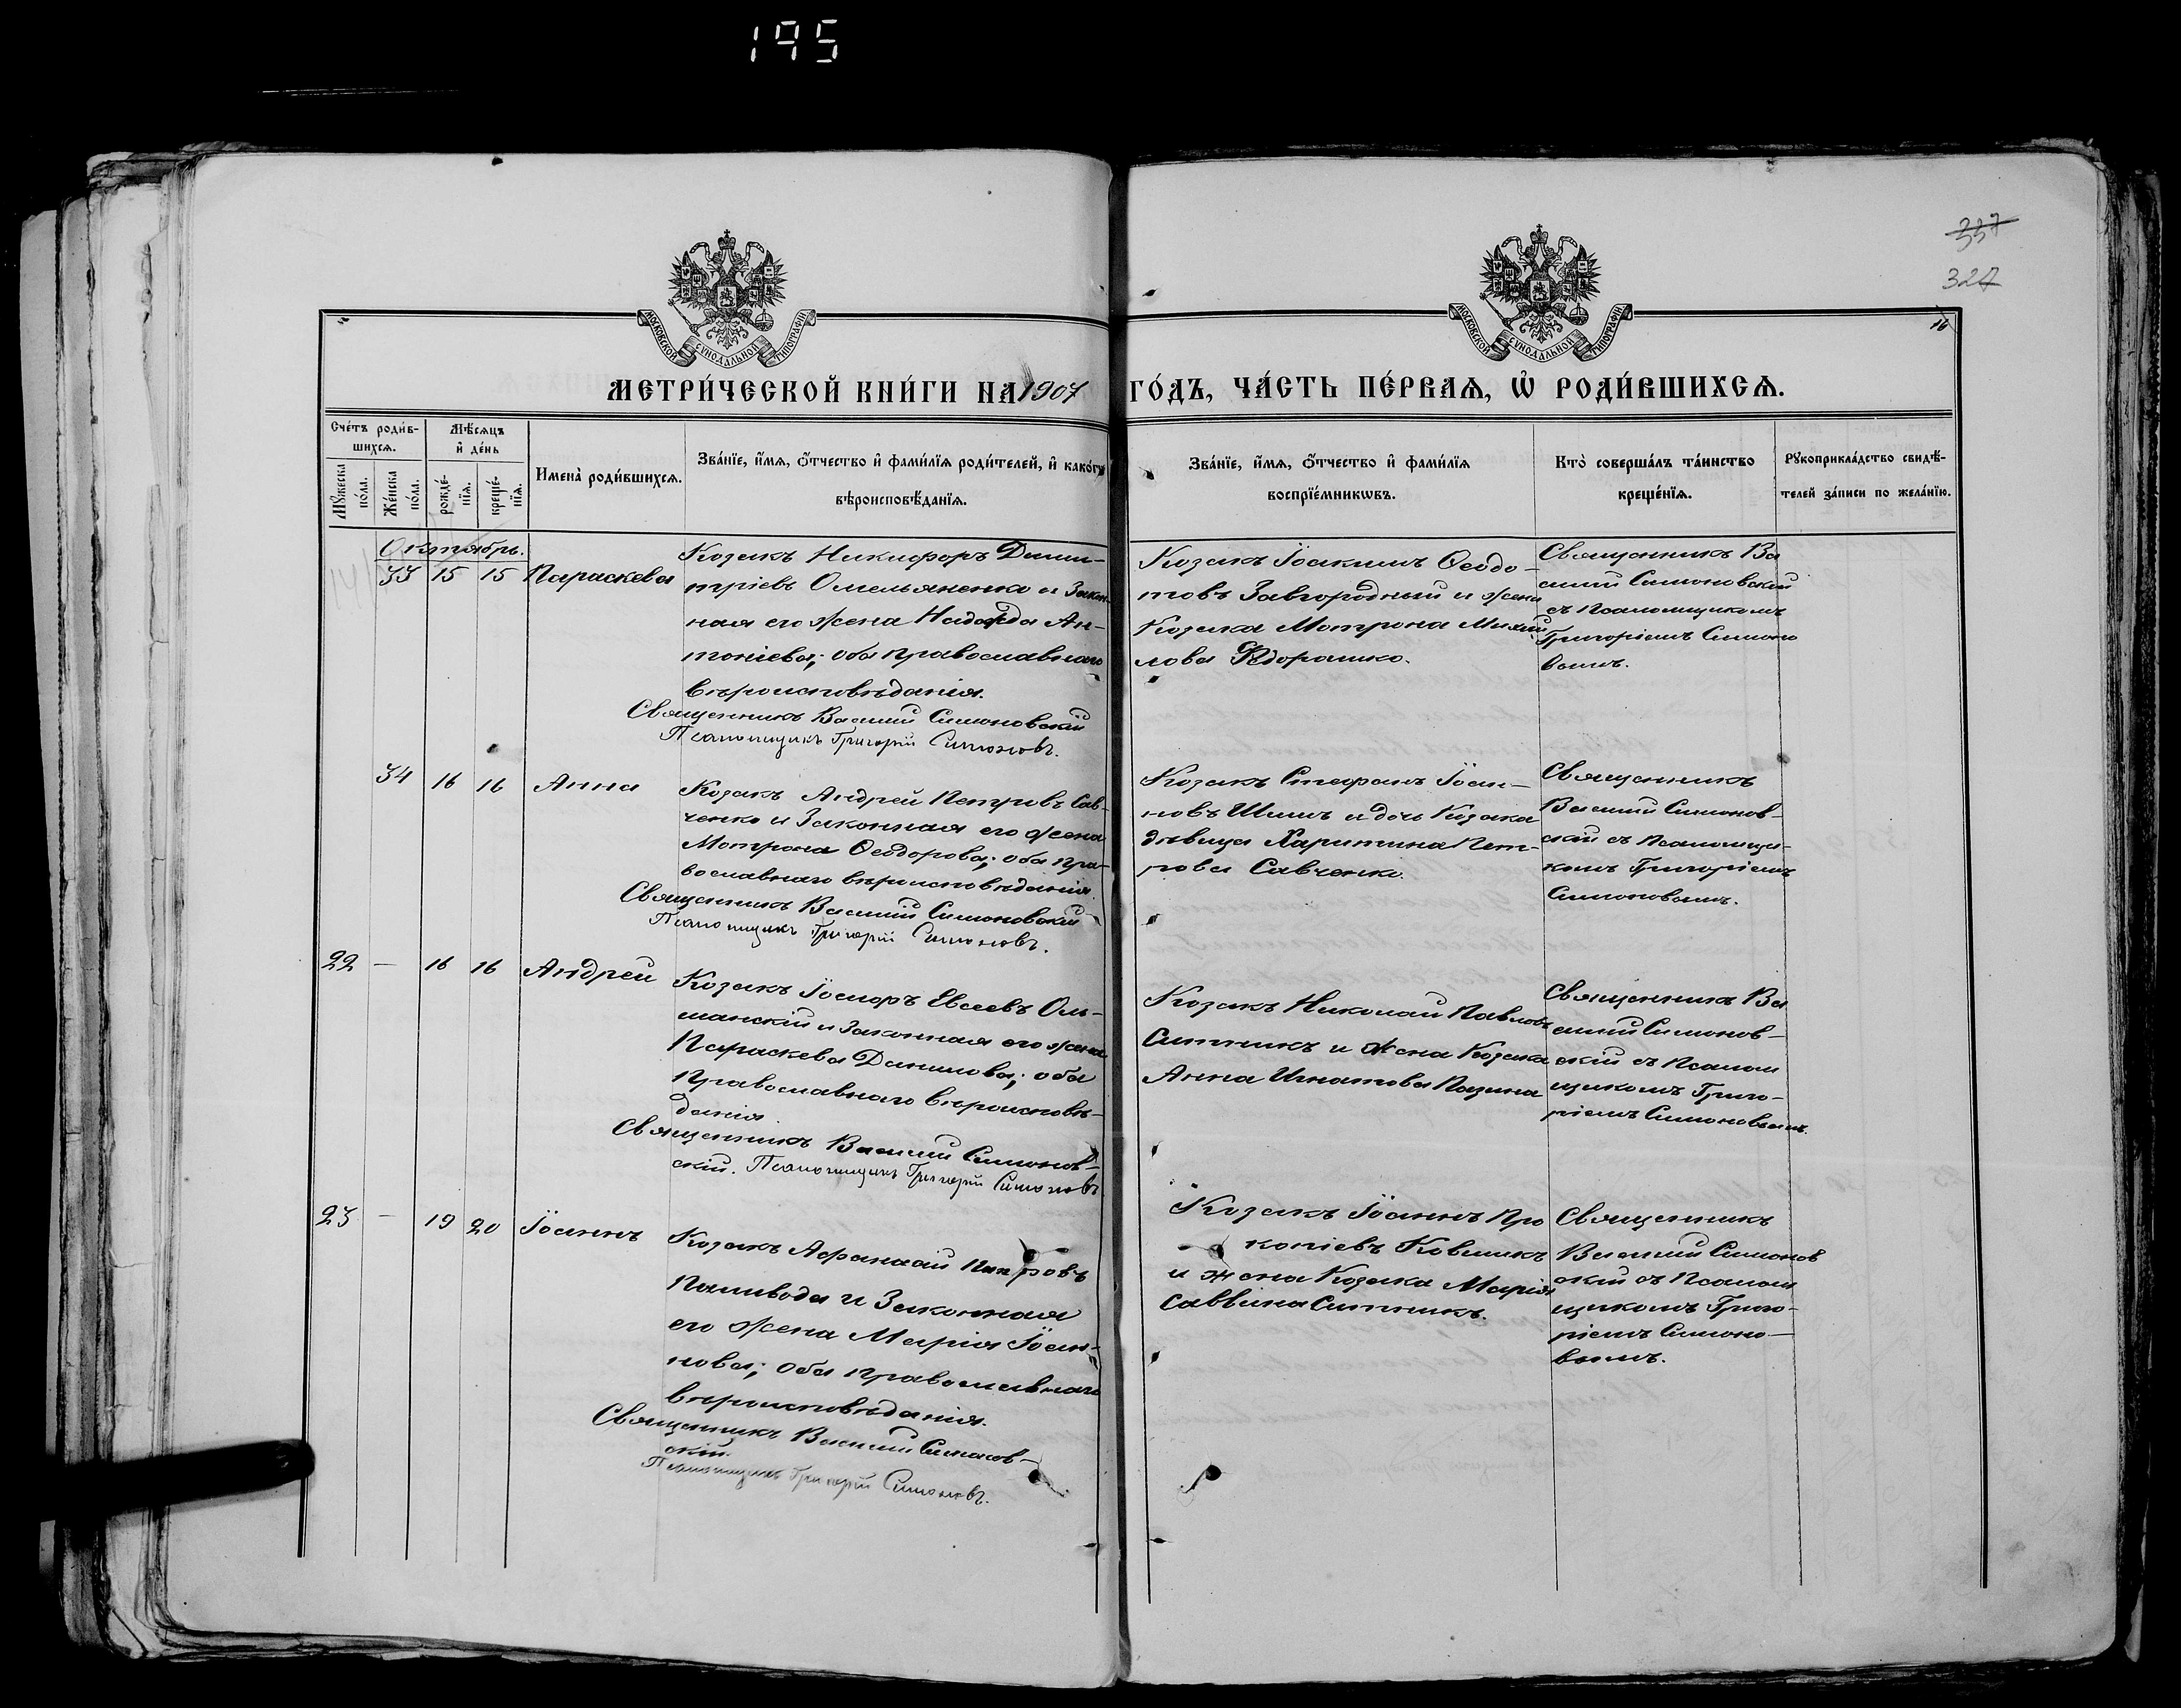 195
337
327
16
МОСКОВСКОЙ СУНОДАЛЬНОЙ ТИПОГРАФІИ
МОСКОВСКОЙ СУНОДАЛЬНОЙ ТИПОГРАФІИ
МЕТРИ́ЧЕСКОЙ КНИ́ГИ НА 1907 ГО́ДЪ, ЧА́СТЬ ПЕ́РВАѦ, Ѽ РОДИ́ВШИХСѦ.
Сче́тъ роди́в-
шихсѧ.
Мꙋ́жеска
по́ла.
Же́нска
по́ла.
Мѣ́сѧцъ
и҆ де́нь
рожде́-
нїѧ.
креще́-
нїѧ.
Имена̀ роди́вшихсѧ.
Зва́нїе, и҆́мѧ, ѻ҆́тчество и҆ фами́лїѧ роди́телей, и҆ како́гѡ
вѣроисповѣ́данїѧ.
Зва́нїе, и҆́мѧ, ѻ҆́тчество и҆ фами́лїѧ
воспрїе́мникѡвъ.
Кто̀ соверша́лъ та́инство
креще́нїѧ.
Рꙋкоприкла́дство свидѣ́-
телей за́писи по жела́нїю.
Октябрь.
33 15 15 Параскева
Козакъ Никифоръ Дими-
тріевъ Омельяненко и Закон-
ная его жена Надежда Ан-
тоніева; оба православнаго
вѣроисповѣданія.
Священникъ Василій Симоновскій
Псаломщикъ Григорій Симоновъ.
Козакъ Іоакимъ Ѳеодо-
товъ Завгородный и жена
Козака Мотрона Михаи
лова Ѳедорашко.
Священникъ Ва
силій Симоновскій
съ Псаломщикомъ
Григоріемъ Симоно
вымъ.
34 16 16 Анна
Козакъ Андрей Петровъ Сав-
ченко и Законная его жена
Мотрона Ѳеодорова; оба пра-
вославнаго вѣроисповѣданія
Священникъ Василій Симоновскій
Псаломщикъ Григорій Симоновъ.
Козакъ Стефанъ Іоан-
новъ Шишъ и дочь Козака
дѣвица Харитина Пет-
рова Савченко.
Священникъ
Василій Симонов-
скій съ Псаломщи-
комъ Григоріемъ
Симоновымъ.
22 — 16 16 Андрей
Козакъ Іосифъ Евсеевъ Оль-
шанскій и Законная его жена
Параскева Данилова; оба
православнаго вѣроисповѣ-
данія.
Священникъ Василій Симонов-
скій. Псаломщикъ Григорій Симоновъ
Козакъ Николай Павловъ
Ситникъ и жена Козака
Анна Игнатова
Священникъ Ва
силій Симонов-
скій съ Псалом
щикомъ Григо-
ріемъ Симоновымъ.
23 — 19 20 Іоаннъ
Козакъ Афанасій Петровъ
Паливода и Законная
его жена Марія Іоан-
нова; оба православнаго
вѣроисповѣданія.
Священникъ Василій Симонов-
скій.
Псаломщикъ Григорій Симоновъ.
Козакъ Іоаннъ Про
копіевъ Ковшикъ
и жена Козака Марія
Саввина Ситникъ.
Священникъ
Василій Симонов
скій съ Псалом
щикомъ Григо-
ріемъ Симоно-
вымъ.